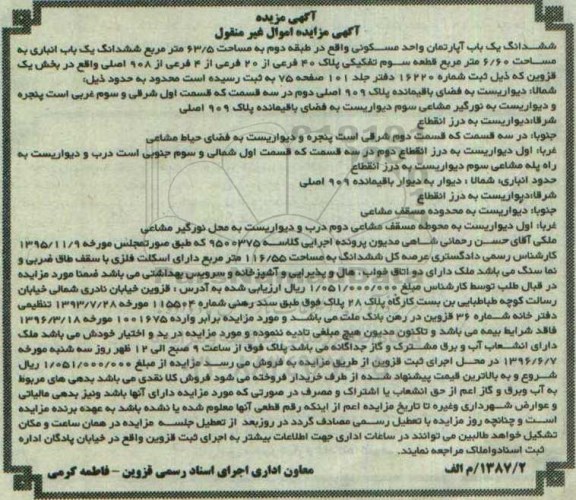 آگهی مزیده
آگهی مزایده اموال غیر منقول
ششدانگ یک باب آپارتمان واحد مسکونی واقع در طبقه دوم به مساحت ۶۳/۵ متر مربع ششدانگ یک باب انباری به
مساحت ۶/۶۰ متر مربع قطعه سوم تفکیکی پلاک ۴۰ فرعی از ۲۰ فرعی از ۴ فرعی از ۹۰۸ اصلی واقع در بخش یک
قزوین که ذیل ثبت شماره ۱۶۲۲۰ دفتر جلد ۱۰۱ صفحه ۷۵ به ثبت رسیده است محدود به حدود ذیل:
شمالا: دیواریست به فضای باقیمانده پلاک ۹۰۹ اصلی دوم در سه قسمت که قسمت اول شرقی و سوم غربی است پنجره
و دیواریست به نورگیر مشاعی سوم دیواریست به فضای باقیمانده پلاک ۹۰۹ اصلی
شرقا:دیواریست به درز انقطاع
جنوبا: در سه قسمت که قسمت دوم شرقی است پنجره و دیواریست به فضای حیاط مشاعی
غربا: اول دیواریست به درز انقطاع دوم در سه قسمت که قسمت اول شمالی و سوم جنوبی است درب و دیواریست به
راه پله مشاعی سوم دیواریست به درز انقطاع
حدود انباری: شمالا : دیوار به دیوار باقیمانده ۹۰۹ اصلی
شرقا:دیواریست به درز انقطاع
جنوبا: دیواریست به محدوده مسقف مشاعی
غربا: اول دیواریست به محوطه مسقف مشاعی دوم درب و دیواریست به محل نورگیر مشاعی
ملکی آقای حسن رحمانی شاهی مدیون پرونده اجرایی کلاسه ۹۵۰۰۳۷۵ که طبق صورتمجلس مورخه ۱۳۹۵/۱۱/۹
کارشناس رسمی دادگستری عرصه کل ششدانگ به مساحت ۱۱۶/۵۵ متر مربع دارای اسکلت فلزی با سقف طاق ضربی و
نما سنگ می باشد ملک دارای دو اتاق خواب ، هال و پذیرایی و آشپزخانه و سرویس بهداشتی می باشد ضمنا مورد مزایده
در قبال طلب توسط کارشناس مبلغ ۱/۰۵۱/۰۰۰/۰۰۰ ریال ارزیابی شده به آدرس : قزوین خیابان نادری شمالی خیابان
رسالت کوچه طباطبایی بن بست کارگاه پلاک ۲۸ پلاک فوق طبق سند رهنی شماره ۱۱۵۵۰۴ مورخه ۱۳۹۳/۷/۲۸ تنظیمی
دفتر خانه شماره ۳۶ قزوین در رهن بانک ملت می باشد و مورد مزایده برابر وارده ۱۰۰۱۶۷۵ مورخه ۱۳۹۶/۳/۱۸
فاقد شرایط بیمه می باشد و تاکنون مدیون هیچ مبلغی تادیه ننموده و مورد مزایده در ید و اختیار خودش می باشد ملک
دارای انشعاب آب و برق مشترک و گاز جداگانه می باشد پلاک فوق از ساعت ۹ صبح الی ۱۲ ظهر روز سه شنبه مورخه
۱۳۹۶/۶/۷ در محل اجرای ثبت قزوین از طریق مزایده به فروش می رسد مزایده از مبلغ ۱/۰۵۱/۰۰۰/۰۰۰ ریال
شروع و به بالاترین قیمت پیشنهاد شده از طرف خریدار فروخته می شود فروش کلا نقدی می باشد بدهی های مربوط
به آب وبرق و گاز اعم از حق انشعاب یا اشتراک و مصرف در صورتی که مورد مزایده دارای آنها باشد ونیز بدهی مالیاتی
و عوارض شهرداری وغیره تا تاریخ مزایده اعم از اینکه رقم قطعی آنها معلوم شده یا نشده باشد به عهده برنده مزایده
است و چنانچه روز مزایده با تعطیل رسمی مصادف گردد در روزبعد از تعطیل جلسه مزایده در همان ساعت و مکان
تشکیل خواهد طالبین می توانند در ساعات اداری جهت اطلاعات بیشتر به اجرای ثبت قزوین واقع در خیابان پادگان اداره
ثبت اسنادواملاک مراجعه نمایند.
معاون اداری اجرای اسناد رسمی قزوین - فاطمه کرمی
۱۳۸۷/۲/م الف